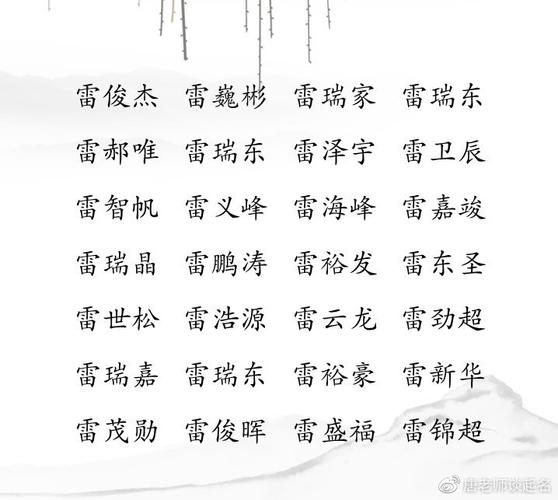 雷俊杰 雷巍彬 雷瑞家 雷瑞东
雷郝唯 雷瑞东 雷泽宇 雷卫辰
雷智帆 雷义峰 雷海峰 雷嘉竣
雷瑞晶 雷鹏涛 雷裕发 雷东圣
雷世松 雷浩源 雷云龙 雷劲超
雷瑞嘉 雷瑞东 雷裕豪 雷新华
雷茂勋 雷俊晖 雷盛福 雷锦超
唐老师谈起名